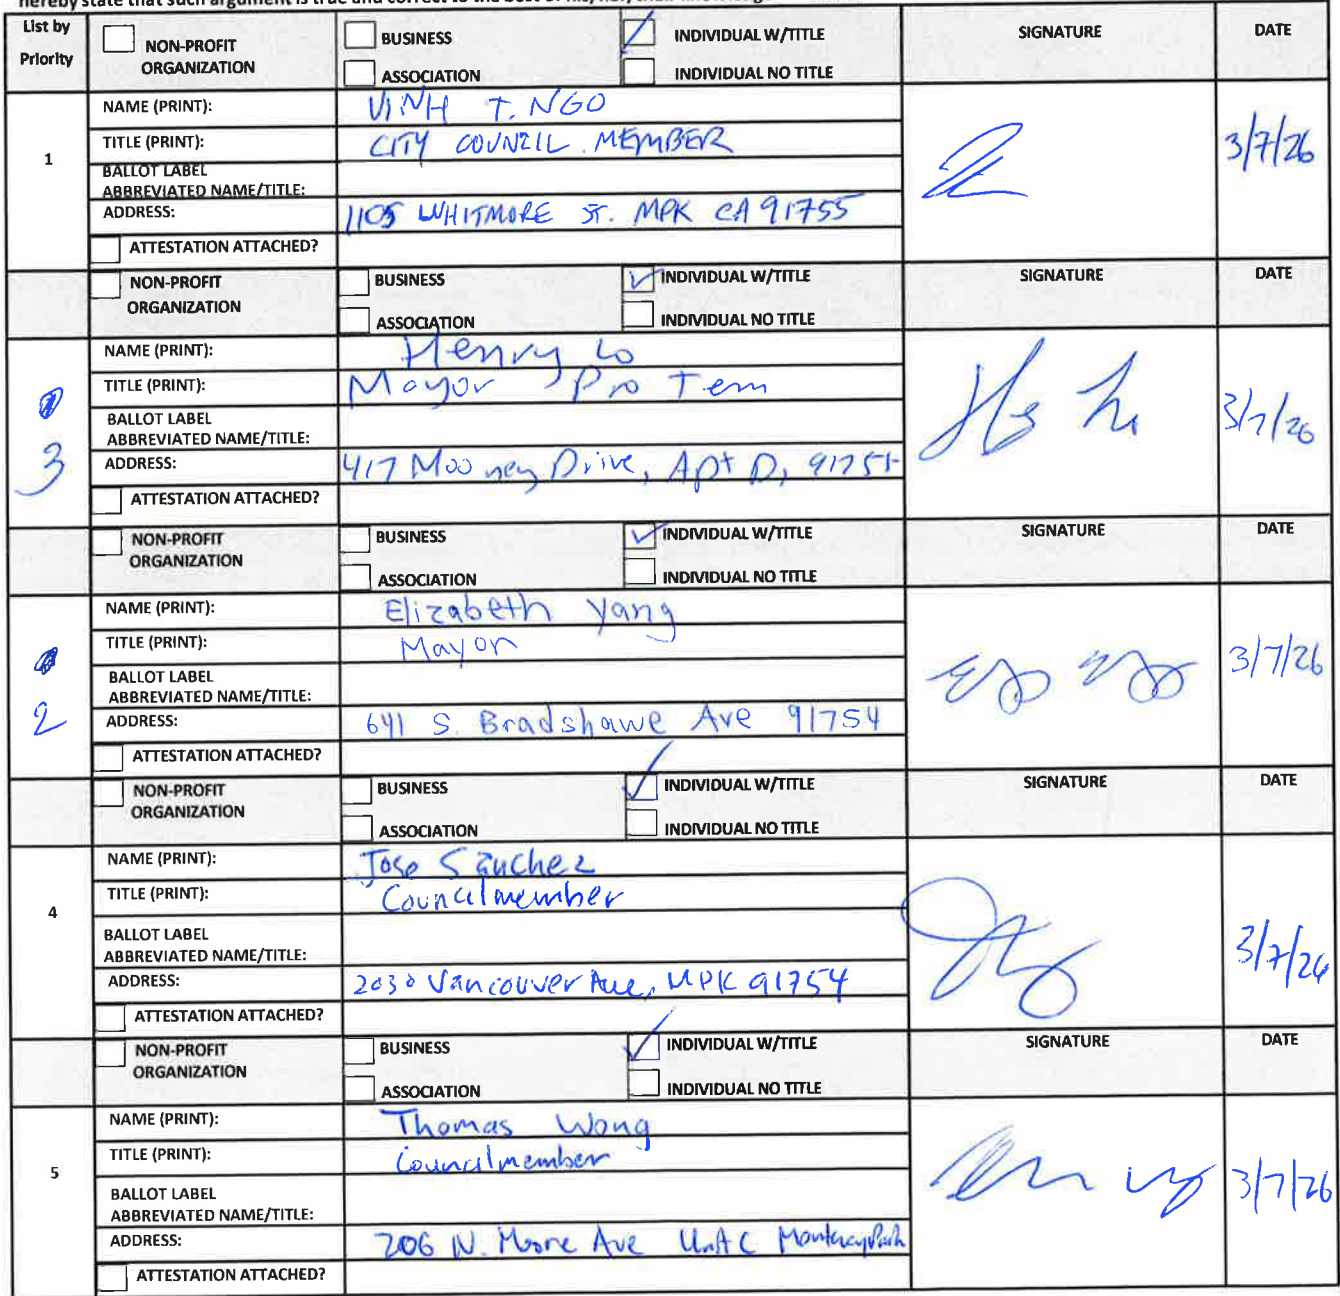 hereby state that such argument is true and correct to the best of his/her/their knowledge
List by Priority NON-PROFIT ORGANIZATION BUSINESS ASSOCIATION INDIVIDUAL W/TITLE INDIVIDUAL NO TITLE SIGNATURE DATE
1
NAME (PRINT): VINH T. NGO
TITLE (PRINT): CITY COUNZIL MEMBER
BALLOT LABEL
ABBREVIATED NAME/TITLE:
ADDRESS: 1105 WHITMORE ST. MPK CA 91755
ATTESTATION ATTACHED?
3/7/26
NON-PROFIT ORGANIZATION BUSINESS ASSOCIATION INDIVIDUAL W/TITLE INDIVIDUAL NO TITLE SIGNATURE DATE
3
NAME (PRINT): Henry Lo
TITLE (PRINT): Mayor Pro Tem
BALLOT LABEL
ABBREVIATED NAME/TITLE:
ADDRESS: 417 Mooney Drive, Apt D, 91755
ATTESTATION ATTACHED?
3/7/26
NON-PROFIT ORGANIZATION BUSINESS ASSOCIATION INDIVIDUAL W/TITLE INDIVIDUAL NO TITLE SIGNATURE DATE
2
NAME (PRINT): Elizabeth Yang
TITLE (PRINT): Mayor
BALLOT LABEL
ABBREVIATED NAME/TITLE:
ADDRESS: 641 S. Bradshawe Ave 91754
ATTESTATION ATTACHED?
3/7/26
NON-PROFIT ORGANIZATION BUSINESS ASSOCIATION INDIVIDUAL W/TITLE INDIVIDUAL NO TITLE SIGNATURE DATE
4
NAME (PRINT): Jose Sánchez
TITLE (PRINT): Councilmember
BALLOT LABEL
ABBREVIATED NAME/TITLE:
ADDRESS: 2030 Vancouver Ave, MPK 91754
ATTESTATION ATTACHED?
3/7/26
NON-PROFIT ORGANIZATION BUSINESS ASSOCIATION INDIVIDUAL W/TITLE INDIVIDUAL NO TITLE SIGNATURE DATE
5
NAME (PRINT): Thomas Wong
TITLE (PRINT): Councilmember
BALLOT LABEL
ABBREVIATED NAME/TITLE:
ADDRESS: 206 N. Moore Ave Unit C Monterey Park
ATTESTATION ATTACHED?
3/7/26